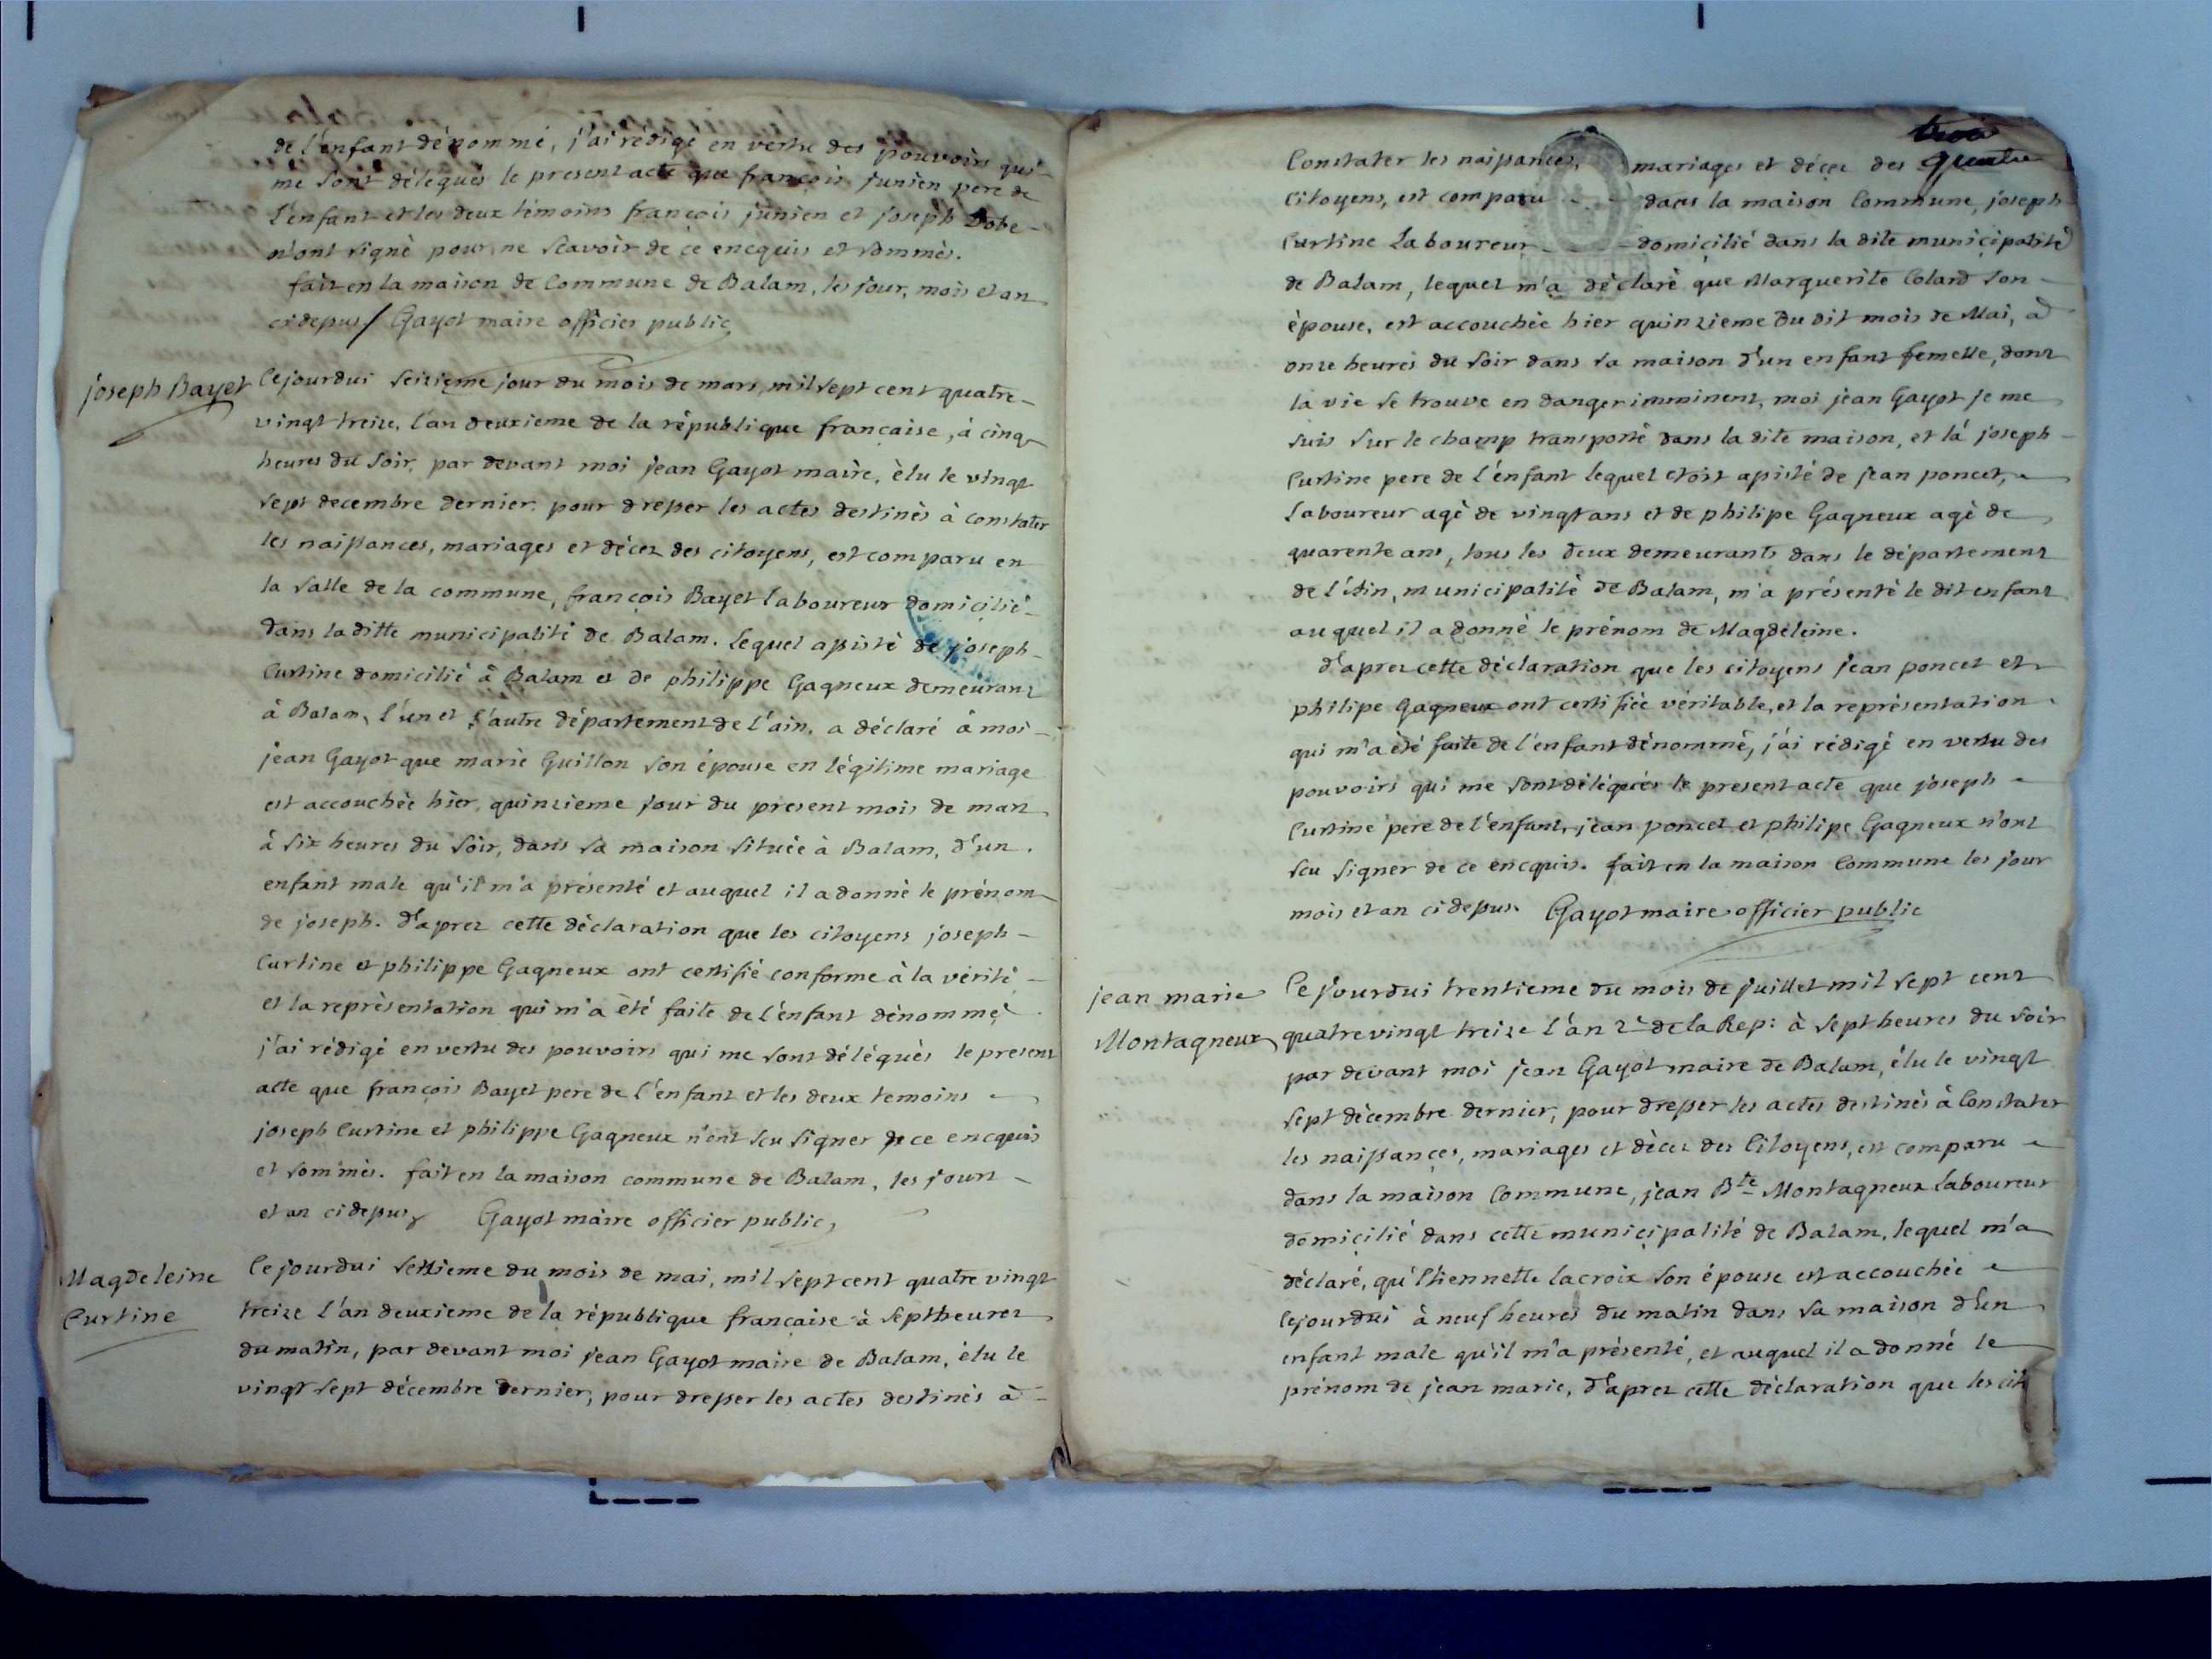 de l'enfant dénommé, j'ai rédigé en vertu des pouvoirs qui
me sont délégués le present acte que françois junien pere de
l'enfant et les deux témoins françois junien et joseph Dobe
n'ont signé pour ne scavoir de ce encquis et sommés.
fait en la maison de Commune de Balam, les jour, mois et an
ci depus / Gayot maire officier public
joseph Bayet
Cejourdui seizieme jour du mois de mars, mil sept cent quatre-
vingt treize, l'an deuxieme de la république française, à cinq
heures du soir, par devant moi jean Gayot maire, élu le vingt
sept decembre dernier, pour dresser les actes destinés à constater
les naissances, mariages et décez des citoyens, est comparu en
la salle de la commune, françois Bayet laboureur domicilié
dans la ditte municipalité de Balam. Lequel assisté de joseph
Curtine domicilié à Balam et de philippe Gagneux demeurant
à Balam, l'un et l'autre département de l'ain, a déclaré à moi
jean Gayot que marie Guillon son épouse en légitime mariage
est accouchée hier, quinzieme jour du present mois de mars
à six heures du soir, dans sa maison située à Balam, d'un
enfant male qu'il m'a présenté et auquel il a donné le prénom
de joseph. d'aprez cette déclaration que les citoyens joseph
Curtine et philippe Gagneux ont certifié conforme à la vérité
et la représentation qui m'a été faite de l'enfant dénommé
j'ai rédigé en vertu des pouvoirs qui me sont délégués le present
acte que françois Bayet pere de l'enfant et les deux temoins
joseph Curtine et philippe Gagneux n'ont scu signer de ce encquis
et sommés. fait en la maison commune de Balam, les jours
et an ci depus Gayot maire officier public,
Magdeleine
Curtine
Cejourdui seizieme du mois de mai, mil sept cent quatre vingt
treize l'an deuxieme de la république française à sept heures
du matin, par devant moi jean Gayot maire de Balam, élu le
vingt sept décembre dernier, pour dresser les actes destinés à
trois
quatre
Constater les naissances, mariages et décez des
Citoyens, est comparu - - dans la maison Commune, joseph
Curtine Laboureur - domicilié dans la dite municipalité
de Balam, lequel m'a déclaré que Marguerite Coland son
épouse, est accouchée hier quinzieme du dit mois de Mai, à
onze heures du soir dans sa maison d'un enfant femelle, dont
la vie se trouve en danger imminent, moi jean Gayot je me
suis sur le champ transporté dans la dite maison, et là joseph
Curtine pere de l'enfant lequel etoit assisté de jean poncet,
laboureur agé de vingt ans et de philipe Gagneux agé de
quarente ans, tous les deux demeurants dans le département
de l'Ain, municipalité de Balam, m'a présenté le dit enfant
auquel il a donné le prénom de Magdeleine.
d'aprez cette déclaration que les citoyens jean poncet et
philipe Gagneux ont certifiée véritable, et la représentation
qui m'a été faite de l'enfant dénommé, j'ai rédigé en vertu des
pouvoirs qui me sont délégués le present acte que joseph
Curtine pere de l'enfant, jean poncet et philipe Gagneux n'ont
scu signer de ce encquis. fait en la maison Commune les jour
mois et an ci depus. Gayot maire officier public
jean marie
Montagneux
Cejourdui trentieme du mois de juillet mil sept cent
quatre vingt treize l'an 2e de la Rep: à sept heures du soir
par devant moi jean Gayot maire de Balam, élu le vingt
sept décembre dernier, pour dresser les actes destinés à Constater
les naissances, mariages et décez des Citoyens, est comparu
dans la maison Commune, jean Bte Montagneux laboureur
domicilié dans cette municipalité de Balam, lequel m'a
déclaré, qu'Etiennette lacroix son épouse est accouchée
cejourdui à neuf heures du matin dans sa maison d'un
enfant male qu'il m'a présenté, et auquel il a donné le
prénom de jean marie, d'aprez cette déclaration que les cit